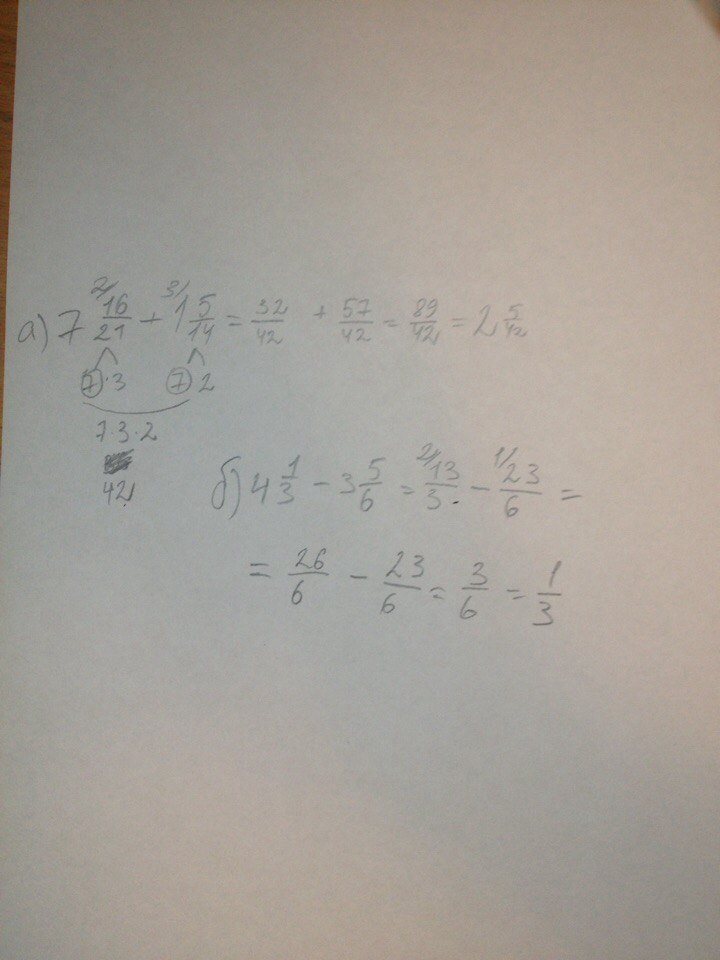 а) 7 2/ 16/21 + 3/ 1 5/14 = 32/42 + 57/42 = 89/42 = 2 5/42
7·3 7 2
7·3·2
42
б) 4 1/3 - 3 5/6 = 2/ 13/3 - 1/ 23/6 =
= 26/6 - 23/6 = 3/6 = 1/3